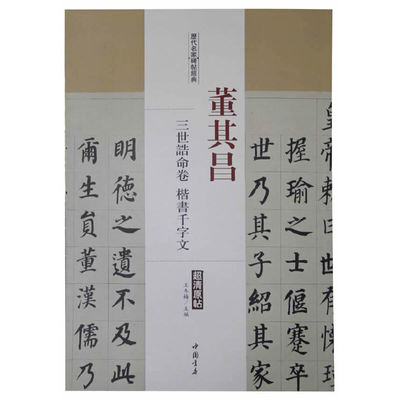 歷代名家碑帖經典
董其昌
三世誥命卷 楷書千字文
超清原帖
王冬梅/主編
中國書店
皇帝敕曰 有懷
握瑜之士偃蹇卒
世乃其子紹其家
明德之遺不及
爾生員董漢儒乃